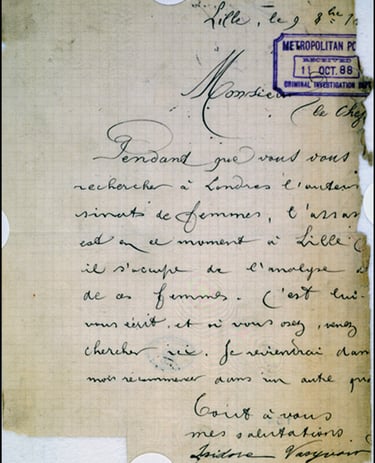 Lille, le 9 8bre
METROPOLITAN PO
RECEIVED
11 OCT. 88
CRIMINAL INVESTIGATION DEP
Monsieur
le Chef
Pendant que vous vous
rechercher à Londres l'auteur
sinats de femmes, l'assas
est en ce moment à Lille
il s'occupe de l'analyse
de ces femmes. C'est lui-
vous écrit, et si vous osez, venez
chercher ici. Je reviendrai dans
mois recommencer dans un autre
Tout à vous
mes salutations
Isidore